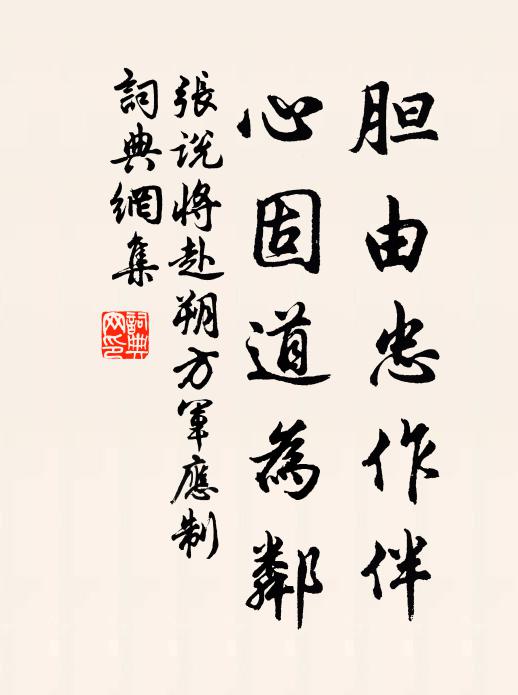 胆由忠作伴
心固道為鄰
張说将赴朔方軍應制
詞典網集
詞典
网印